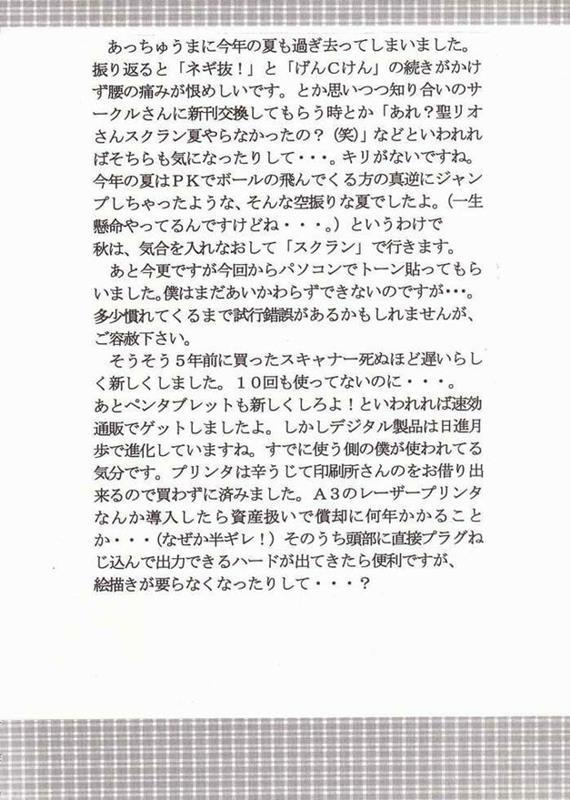 あっちゅうまに今年の夏も過ぎ去ってしまいました。
振り返ると「ネギ抜！」と「げんＣけん」の続きがかけ
ず腰の痛みが恨めしいです。とか思いつつ知り合いのサ
ークルさんに新刊交換してもらう時とか「あれ？聖リオ
さんスクラン夏やらなかったの？（笑）」などといわれれ
ばそちらも気になったりして・・・。キリがないですね。
今年の夏はＰＫでボールの飛んでくる方の真逆にジャン
プしちゃったような、そんな空振りな夏でしたよ。（一生
懸命やってるんですけどね・・・。）というわけで
秋は、気合を入れなおして「スクラン」で行きます。
あと今更ですが今回からパソコンでトーン貼ってもら
いました。僕はまだあいかわらずできないのですが・・・。
多少慣れてくるまで試行錯誤があるかもしれませんが、
ご容赦下さい。
そうそう５年前に買ったスキャナー死ぬほど遅いらし
く新しくしました。１０回も使ってないのに・・・。
あとペンタブレットも新しくしろよ！といわれれば速効
通販でゲットしましたよ。しかしデジタル製品は日進月
歩で進化していますね。すでに使う側の僕が使われてる
気分です。プリンタは辛うじて印刷所さんのをお借り出
来るので買わずに済みました。Ａ３のレーザープリンタ
なんか導入したら資産扱いで償却に何年かかること
か・・・（なぜか半ギレ！）そのうち頭部に直接プラグね
じ込んで出力できるハードが出てきたら便利ですが、
絵描きが要らなくなったりして・・・？